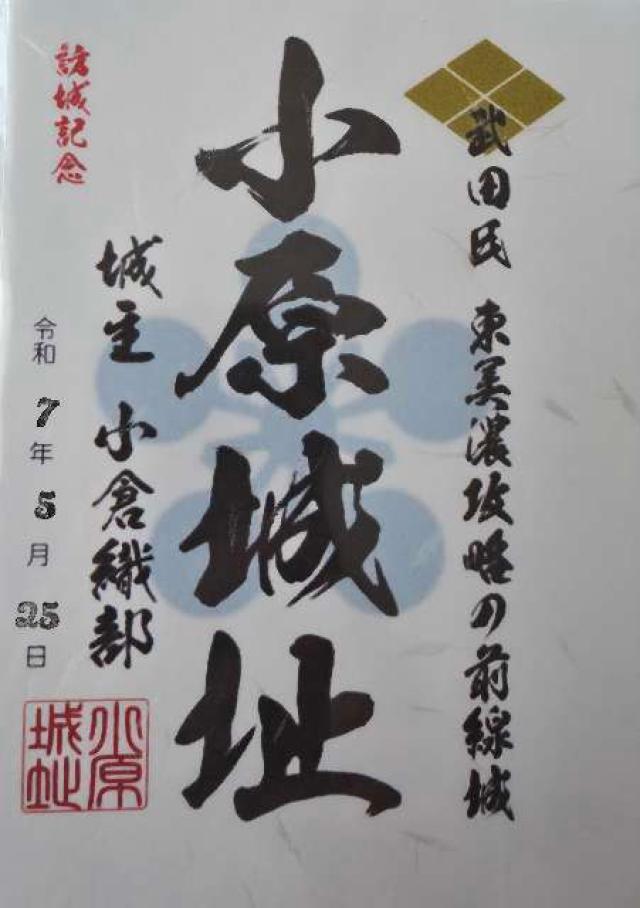 武田氏 東美濃攻略の前線城
小原城址
城主 小倉織部
訪城記念
令和7年5月25日
小原
城址